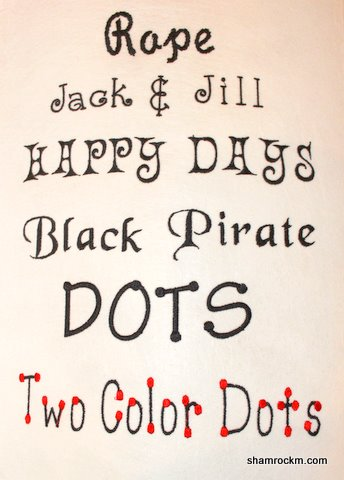 Rope
Jack & Jill
HAPPY DAYS
Black Pirate
DOTS
Two Color Dots
shamrockm.com